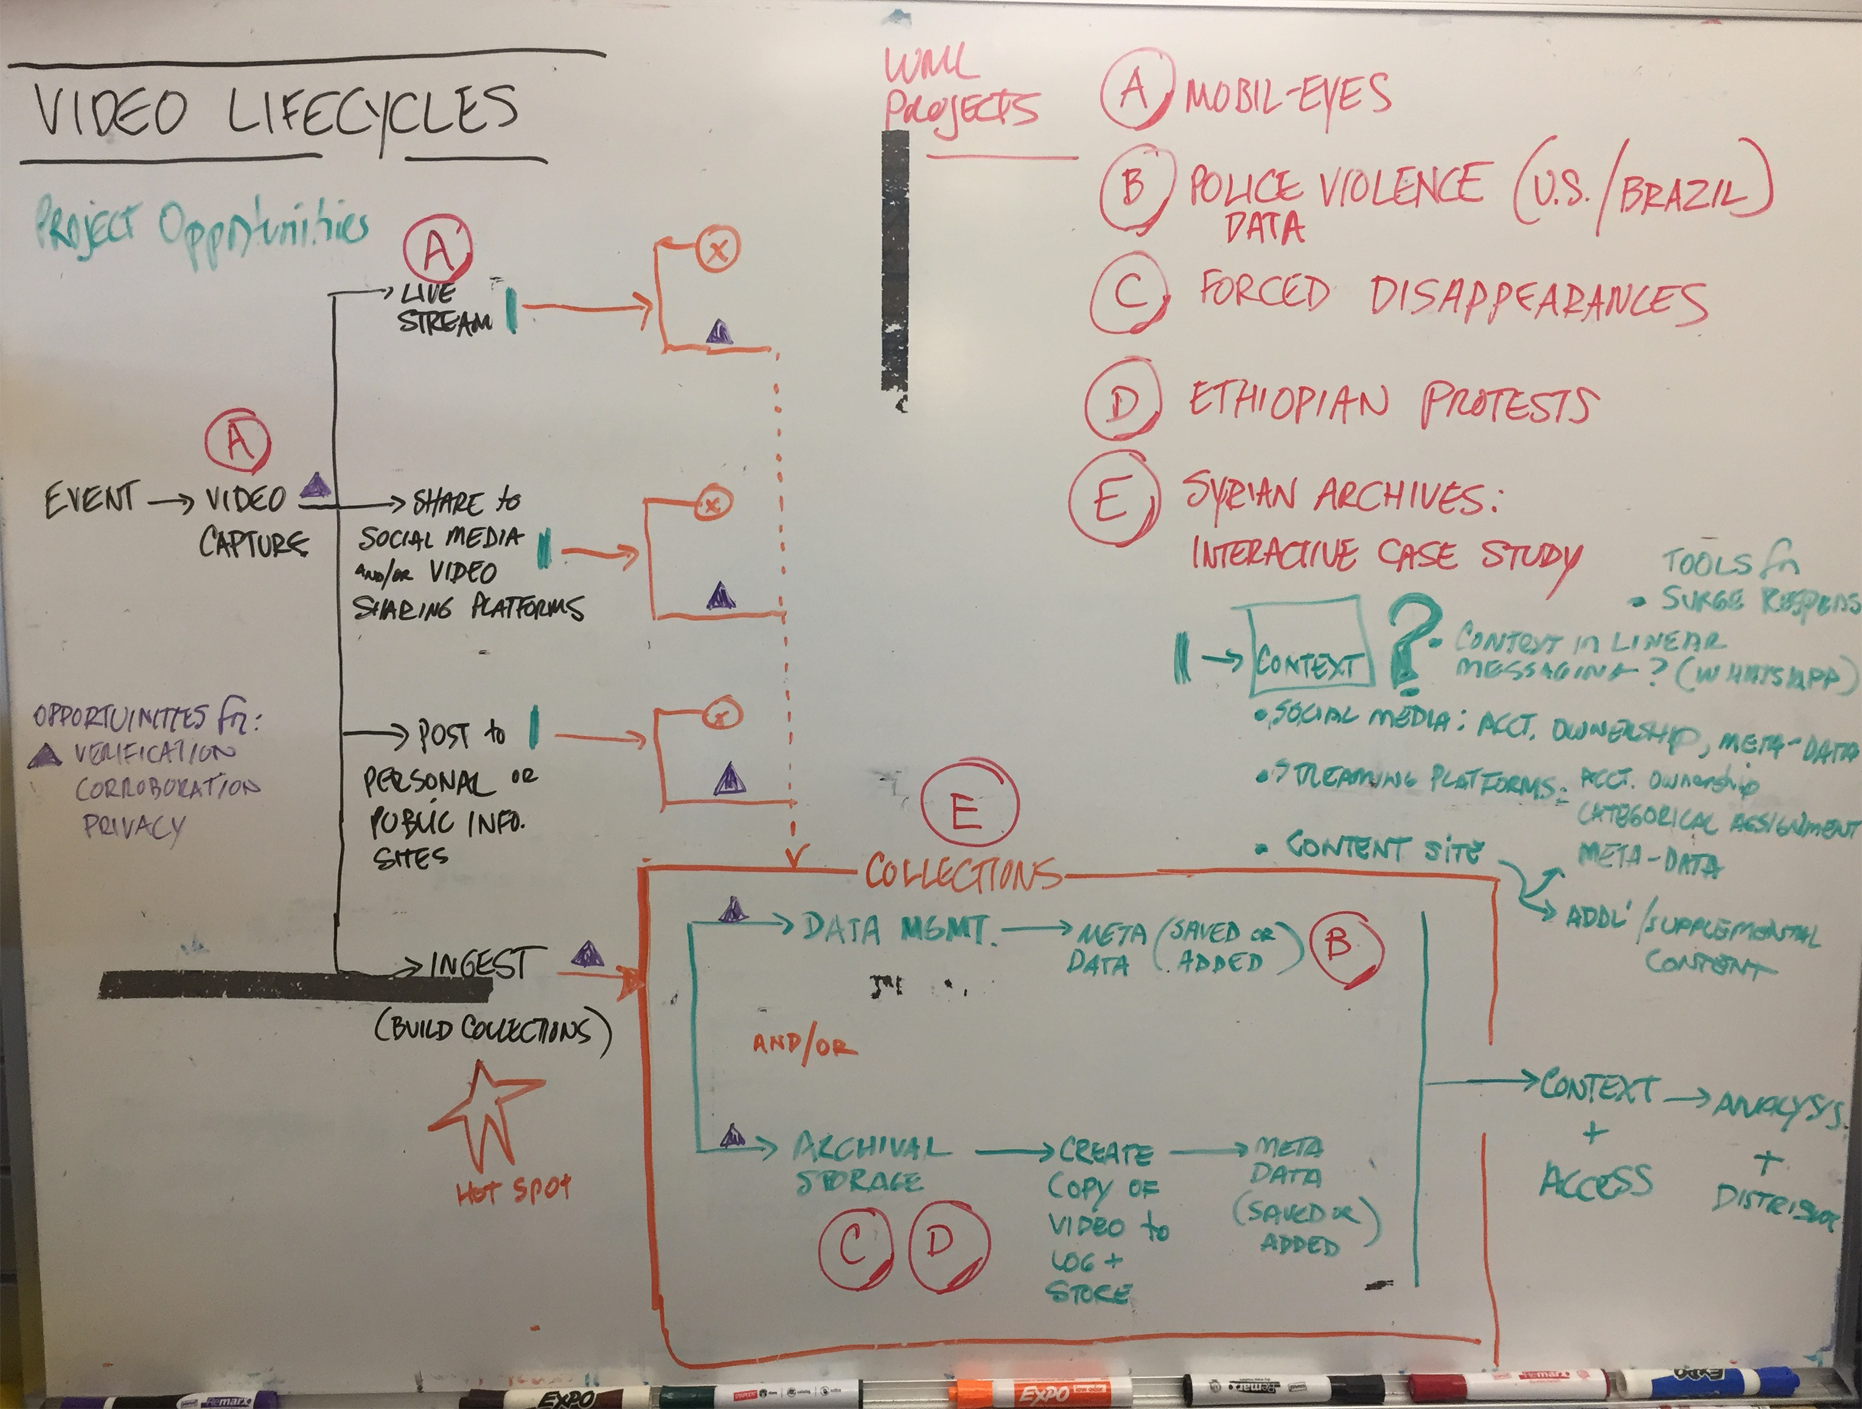 VIDEO LIFECYCLES
Project Opportunities
A
LIVE
STREAM
X
A
EVENT → VIDEO
CAPTURE
→ SHARE to
SOCIAL MEDIA
AND/OR VIDEO
SHARING PLATFORMS
X
OPPORTUINITIES fn:
VERIFICATION
CORROBORATION
PRIVACY
→ POST to
PERSONAL OR
PUBLIC INFO.
SITES
X
→ INGEST
(BUILD COLLECTIONS)
HOT SPOT
WML
PROJECTS
A MOBIL-EYES
B POLICE VIOLENCE (U.S./BRAZIL)
DATA
C FORCED DISAPPEARANCES
D ETHIOPIAN PROTESTS
E SYRIAN ARCHIVES:
INTERACTIVE CASE STUDY
TOOLS fn
• SURGE
→ CONTEXT ?
• CONTEXT IN LINEAR
MESSAGING? (WHATSAPP)
• SOCIAL MEDIA: ACCT. OWNERSHIP, META-DATA
• STREAMING PLATFORMS: ACCT. OWNERSHIP
CATEGORICAL ASSIGNMENT
META-DATA
• CONTENT SITE
ADDL'/SUPPLEMENTAL
CONTENT
E
COLLECTIONS
→ DATA MGMT. → META (SAVED OR
DATA ADDED)
B
AND/OR
→ ARCHIVAL
STORAGE
C D
→ CREATE
COPY OF
VIDEO to
LOG +
STORE
→ META
DATA
(SAVED OR
ADDED)
→ CONTEXT
+
ACCESS
→ ANALYSIS
+
Remarx
EXPO
EXPO
Remarx
EXPO